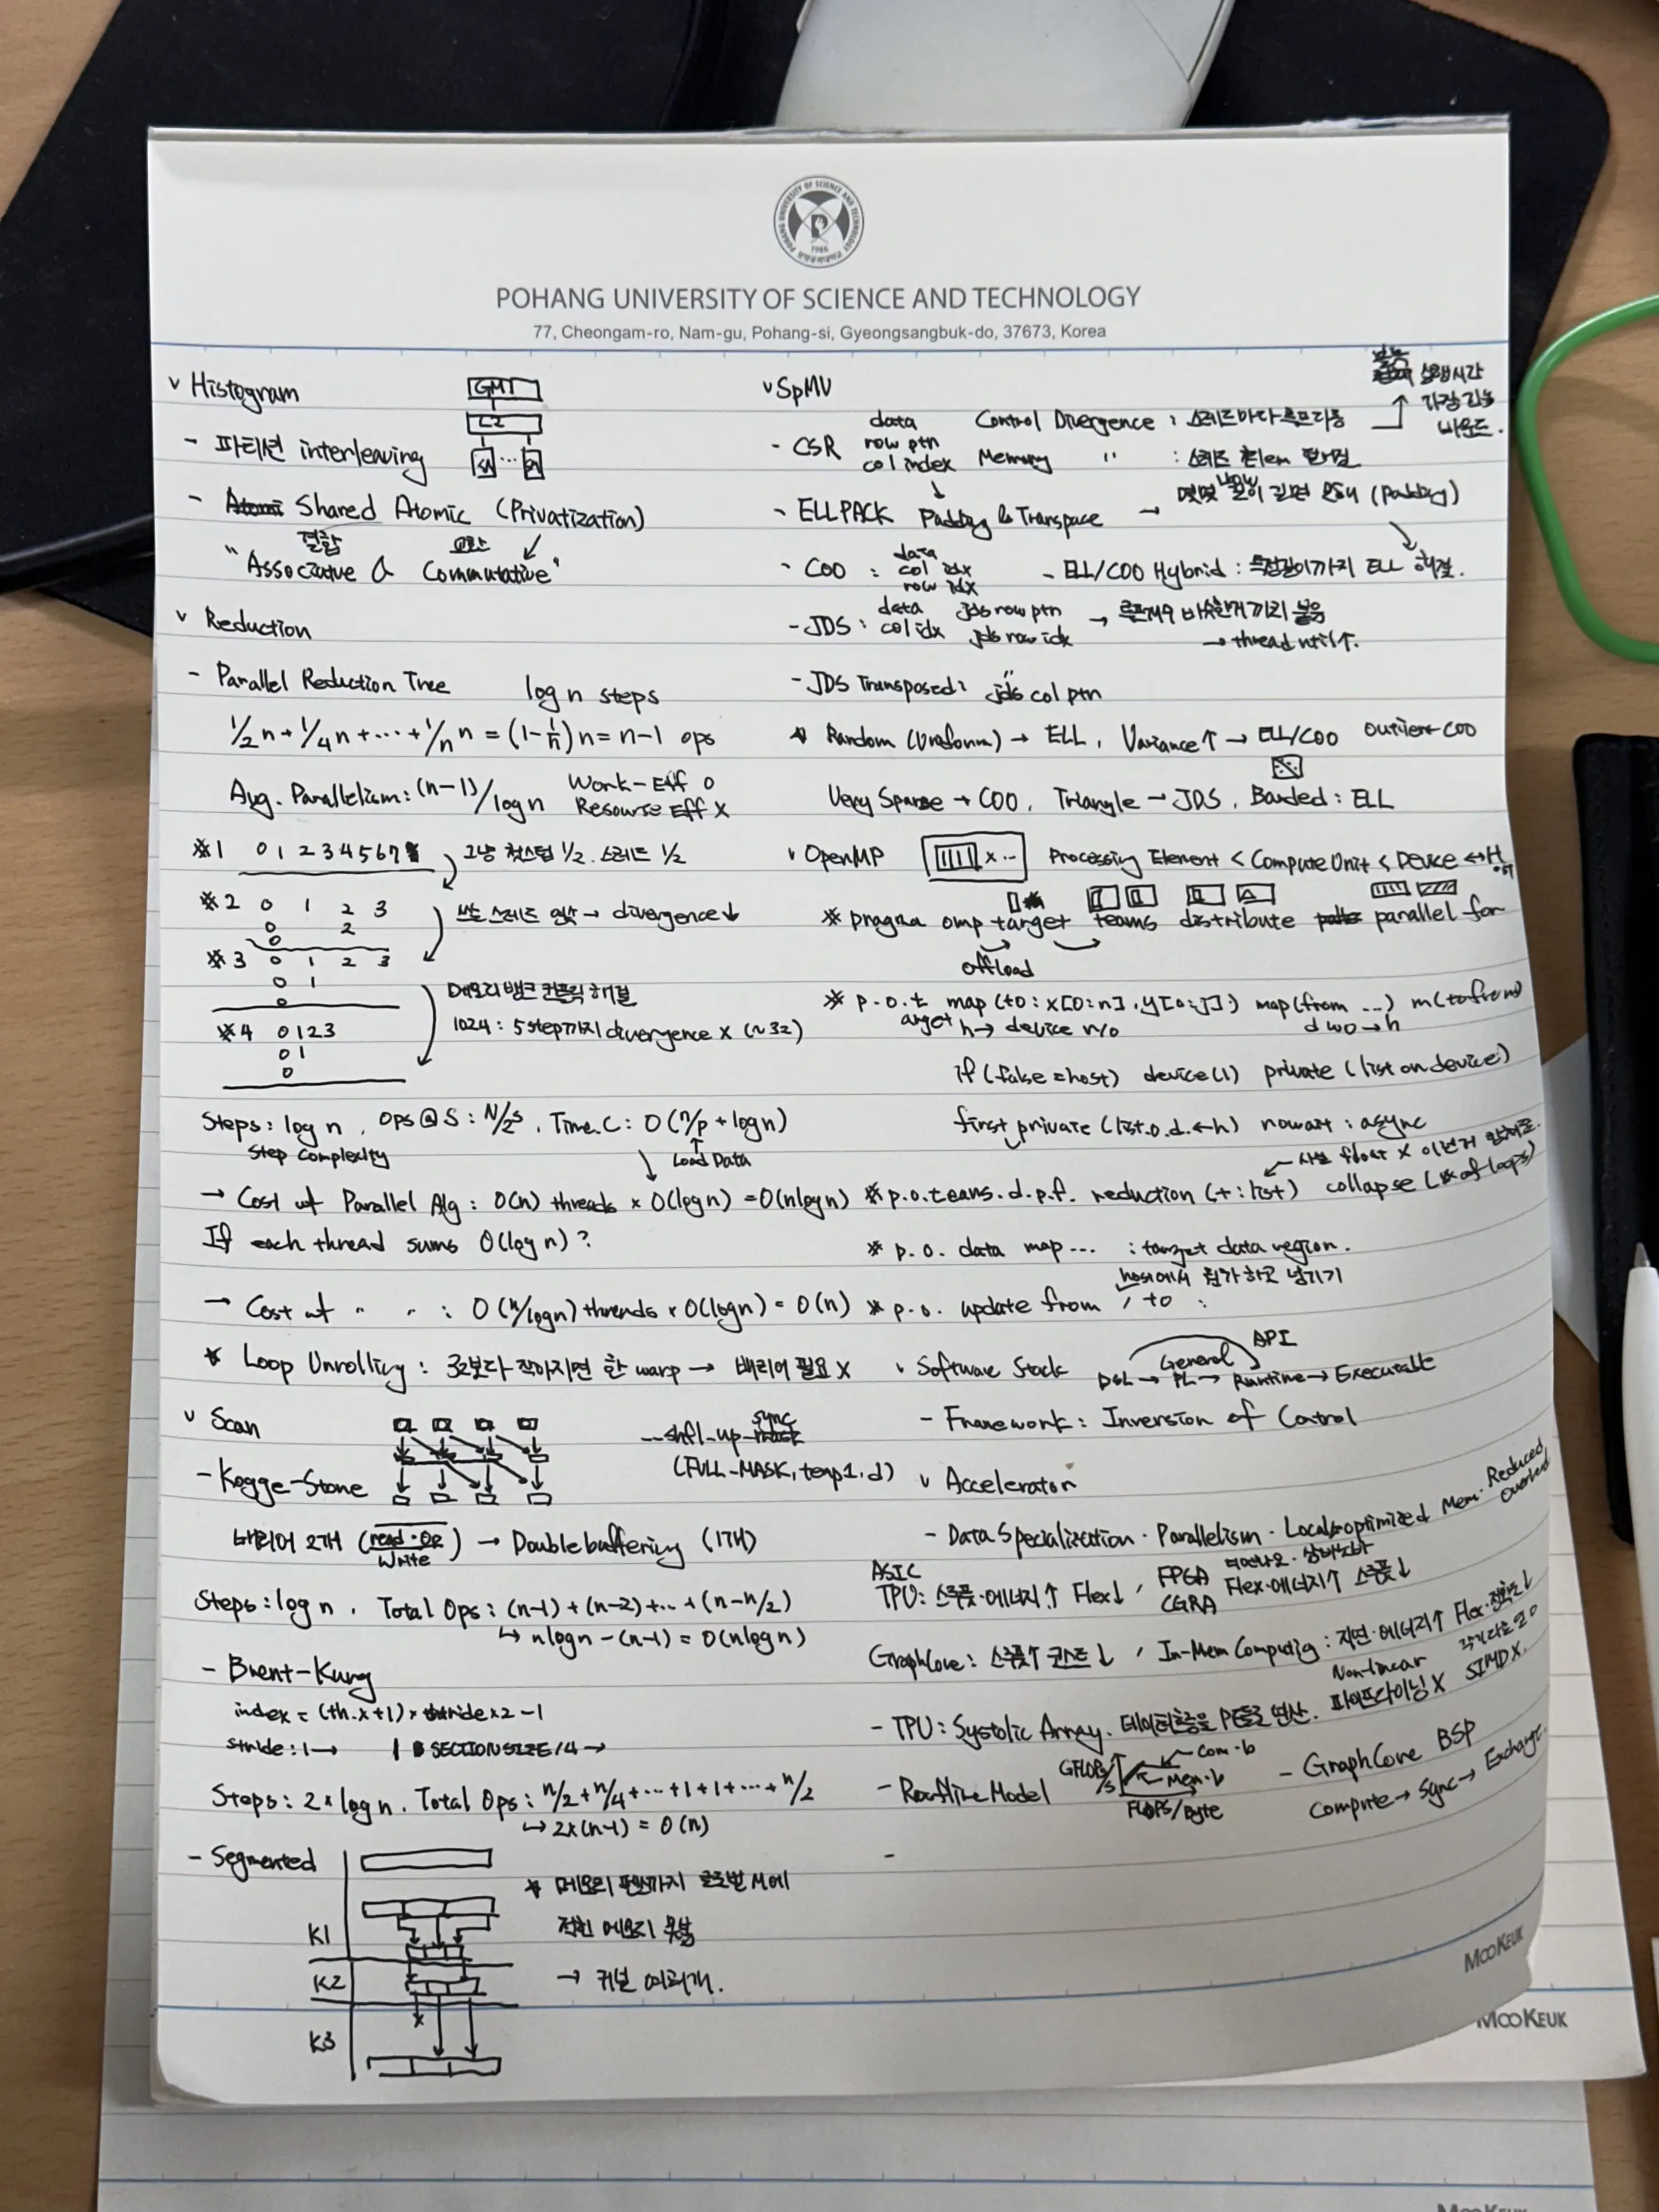 POHANG UNIVERSITY OF SCIENCE AND TECHNOLOGY
77, Cheongam-ro, Nam-gu, Pohang-si, Gyeongsangbuk-do, 37673, Korea
v Histogram
GM
L2
- 파티션 interleaving
- Shared Atomic (Privatization)
결합 교환
"Associative & Commutative"
v Reduction
- Parallel Reduction Tree log n steps
1/2n + 1/4n + ... + 1/n n = (1 - 1/n) n = n-1 ops
Avg. Parallelism: (n-1)/log n
Work-Eff O
Resourse Eff X
※1 0 1 2 3 4 5 6 7
그냥 첫스텝 1/2. 스레드 1/2
※2 0 1 2 3
0 2
0
쓰는 스레드 연속 → divergence↓
※3 0 1 2 3
0 1
0
메모리 뱅크 컨플릭 해결
※4 0 1 2 3
0 1
0
1024 : 5step까지 divergence X (~32)
Steps: log n, Ops@S: N/2^S, Time.C: O(n/p + log n)
Step complexity
Load Data
→ Cost of Parallel Alg: O(n) threads × O(log n) = O(n log n)
If each thread sums O(log n)?
→ Cost of " " : O(n/log n) threads × O(log n) = O(n)
* Loop Unrolling : 32보다 작아지면 한 warp → 배리어 필요 X
v Scan
__shfl-up-sync
(FULL-MASK, temp1, d)
- Kogge-Stone
배리어 2개 (read · op / write) → Double buffering (1개)
Steps: log n, Total Ops: (n-1) + (n-2) + ... + (n-n/2)
↳ n log n - (n-1) = O(n log n)
- Brent-Kung
index = (th.x+1) × stride×2 -1
stride: 1 → SECTIONSIZE/4 →
Steps: 2 * log n. Total Ops: n/2 + n/4 + ... + 1 + 1 + ... + n/2
↳ 2×(n-1) = O(n)
- Segmented
K1
K2
K3
* 메모리 펜스까지 글로벌 M에
적힌 메모리 못봄
→ 커널 여러개.
v SpMV
- CSR
data
row ptr
col index
Control Divergence : 스레드마다 루프 다름
실행시간
가장 긴놈
바운드.
Memory " : 스레드
- ELLPACK Padding & Transpace → 몇몇 길이 길면 (Padding)
- COO :
data
col idx
row idx
- ELL/COO Hybrid : 특정길이까지 ELL 해결.
- JDS :
data
col idx
jds row ptr
jds row idx
→ 루프 비슷한거끼리 붙음
→ thread util↑.
- JDS Transposed: jds col ptr
* Random (Uniform) → ELL, Variance↑ → ELL/COO outlier COO
Very Sparse → COO, Triangle → JDS, Banded: ELL
v OpenMP
Processing Element < Compute Unit < Device ↔ Host
※ pragma omp target teams distribute parallel for
offload
※ p.o.t map (to: x[0:n], y[0:j]) map(from ...) m(tofrom)
arget h→ device r/o
d wo → h
if (false = host) device(1) private (list on device)
first private (list.o.d. ← h) nowait : async
사실 float X
※ p.o.teams.d.p.f. reduction (+: list) collapse (# of loops)
※ p.o. data map ... : target data region.
host에서 하고 넘기기
※ p.o. update from / to :
v Software Stack
API
General
DSL → PL → Runtime → Executable
- Framework : Inversion of Control
v Accelerator
- Data Specialization · Parallelism · Local & optimized Mem · Reduced Overhead
ASIC
TPU: 스루풋·에너지↑ Flex↓ ,
FPGA
CGRA
Flex·에너지↑ 스루풋↓
GraphCore: 스루풋↑ 코스트↓ , In-Mem Computing : 지연·에너지↑ Flex·정확도↓
- TPU : Systolic Array. 데이터흐름을 PE들로 연산.
Non-linear
파이프라이닝 X
SIMD X.
- Roofline Model
GFLOPs/s
Com-b
Mem-b
FLOPS/Byte
- GraphCore BSP
Compute → Sync → Exchange.
MOOKEUK
MOOKEUK